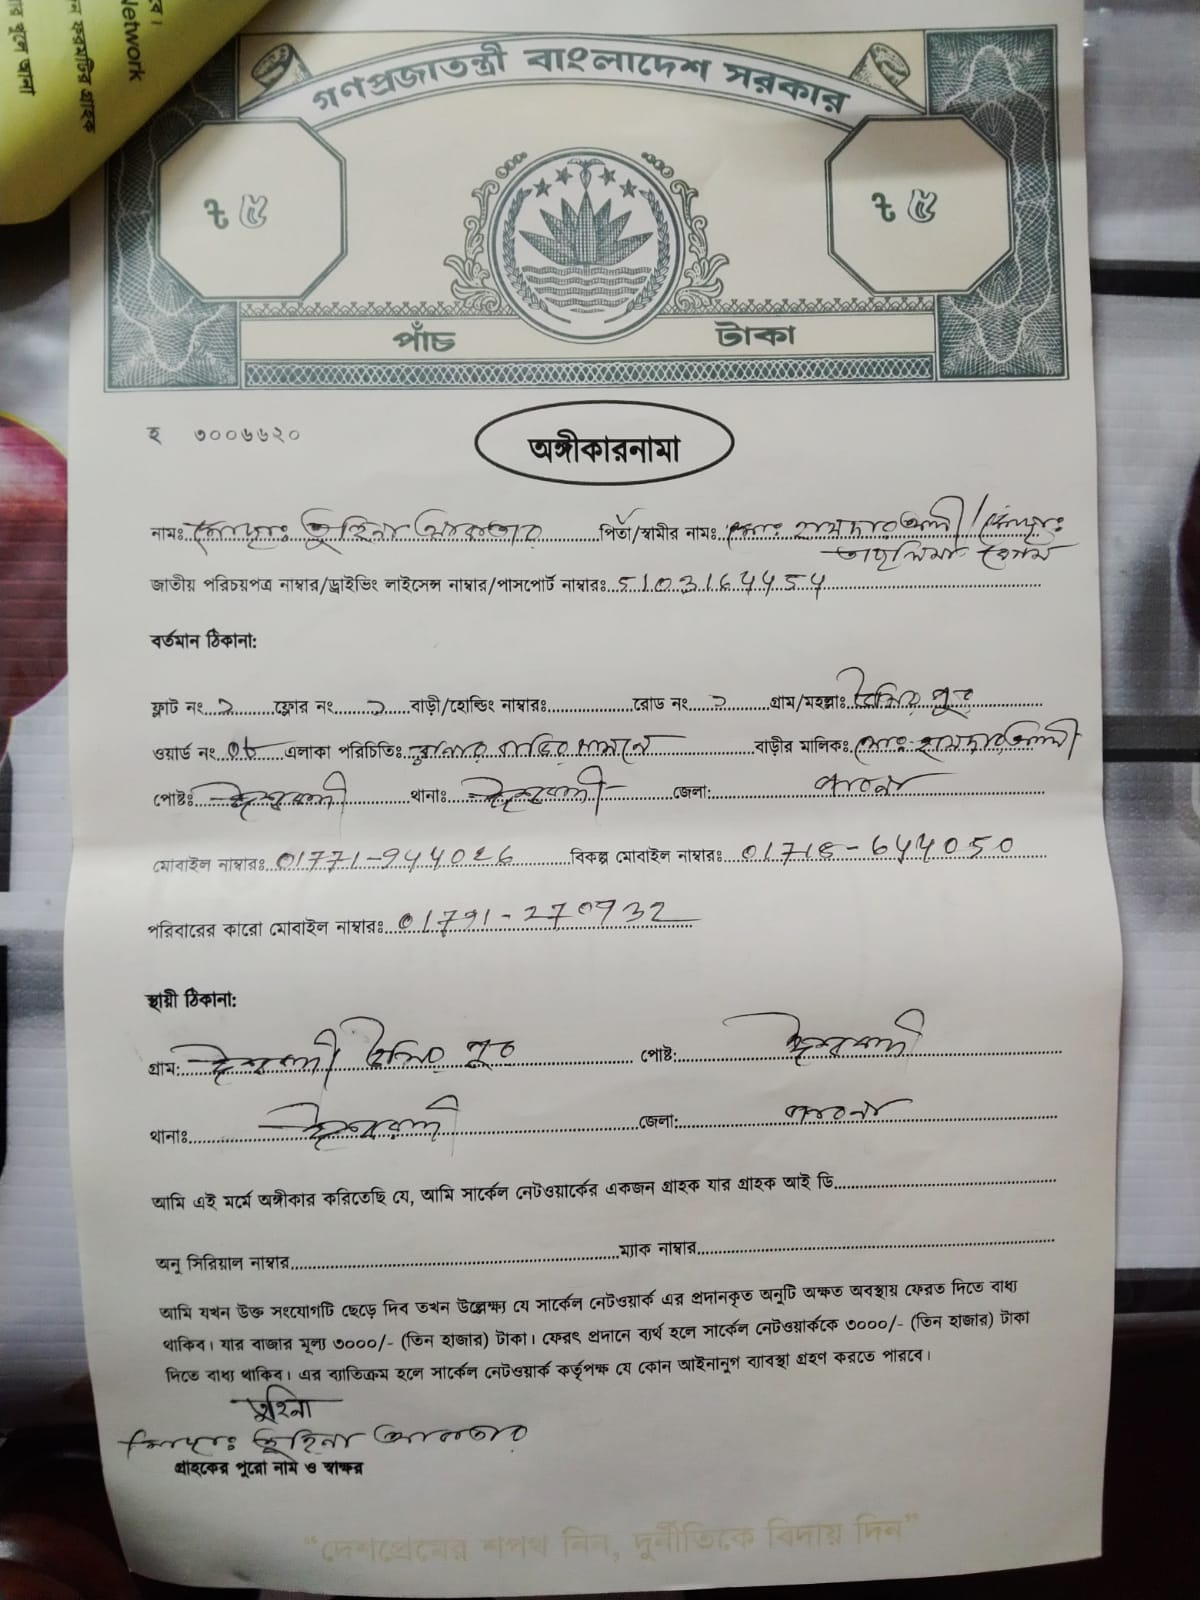 বে।
Network
ন ফরমটির গ্রাহক
গণপ্রজাতন্ত্রী বাংলাদেশ সরকার
৳ ৫
৳ ৫
পাঁচ টাকা
হ ৩০০৬৬২০
অঙ্গীকারনামা
নামঃ মোছাঃ তুহিনা আকতার পিতা/স্বামীর নামঃ মোঃ হামদার আলী / মোছাঃ
তাছলিমা বেগম
জাতীয় পরিচয়পত্র নাম্বার/ড্রাইভিং লাইসেন্স নাম্বার/পাসপোর্ট নাম্বারঃ
বর্তমান ঠিকানা:
ফ্লাট নং ফ্লোর নং বাড়ী/হোল্ডিং নাম্বারঃ রোড নং গ্রাম/মহল্লাঃ
ওয়ার্ড নং এলাকা পরিচিতিঃ বাড়ীর মালিক: মোঃ হামদার আলী
পোষ্টঃ ঈশ্বরদী থানাঃ ঈশ্বরদী জেলা: পাবনা
মোবাইল নাম্বারঃ বিকল্প মোবাইল নাম্বারঃ
পরিবারের কারো মোবাইল নাম্বারঃ 01791-270932
স্থায়ী ঠিকানা:
গ্রাম: ঈশ্বরদী পোষ্ট: ঈশ্বরদী
থানাঃ ঈশ্বরদী জেলা: পাবনা
আমি এই মর্মে অঙ্গীকার করিতেছি যে, আমি সার্কেল নেটওয়ার্কের একজন গ্রাহক যার গ্রাহক আই ডি
অনু সিরিয়াল নাম্বার ম্যাক নাম্বার
আমি যখন উক্ত সংযোগটি ছেড়ে দিব তখন উল্লেক্ষ্য যে সার্কেল নেটওয়ার্ক এর প্রদানকৃত অনুটি অক্ষত অবস্থায় ফেরত দিতে বাধ্য
থাকিব। যার বাজার মূল্য ৩০০০/- (তিন হাজার) টাকা। ফেরৎ প্রদানে ব্যর্থ হলে সার্কেল নেটওয়ার্ককে ৩০০০/- (তিন হাজার) টাকা
দিতে বাধ্য থাকিব। এর ব্যাতিক্রম হলে সার্কেল নেটওয়ার্ক কর্তৃপক্ষ যে কোন আইনানুগ ব্যাবস্থা গ্রহণ করতে পারবে।
তুহিনা
মোছাঃ তুহিনা আকতার
গ্রাহকের পুরো নাম ও স্বাক্ষর
“দেশপ্রেমের শপথ নিন, দুর্নীতিকে বিদায় দিন”